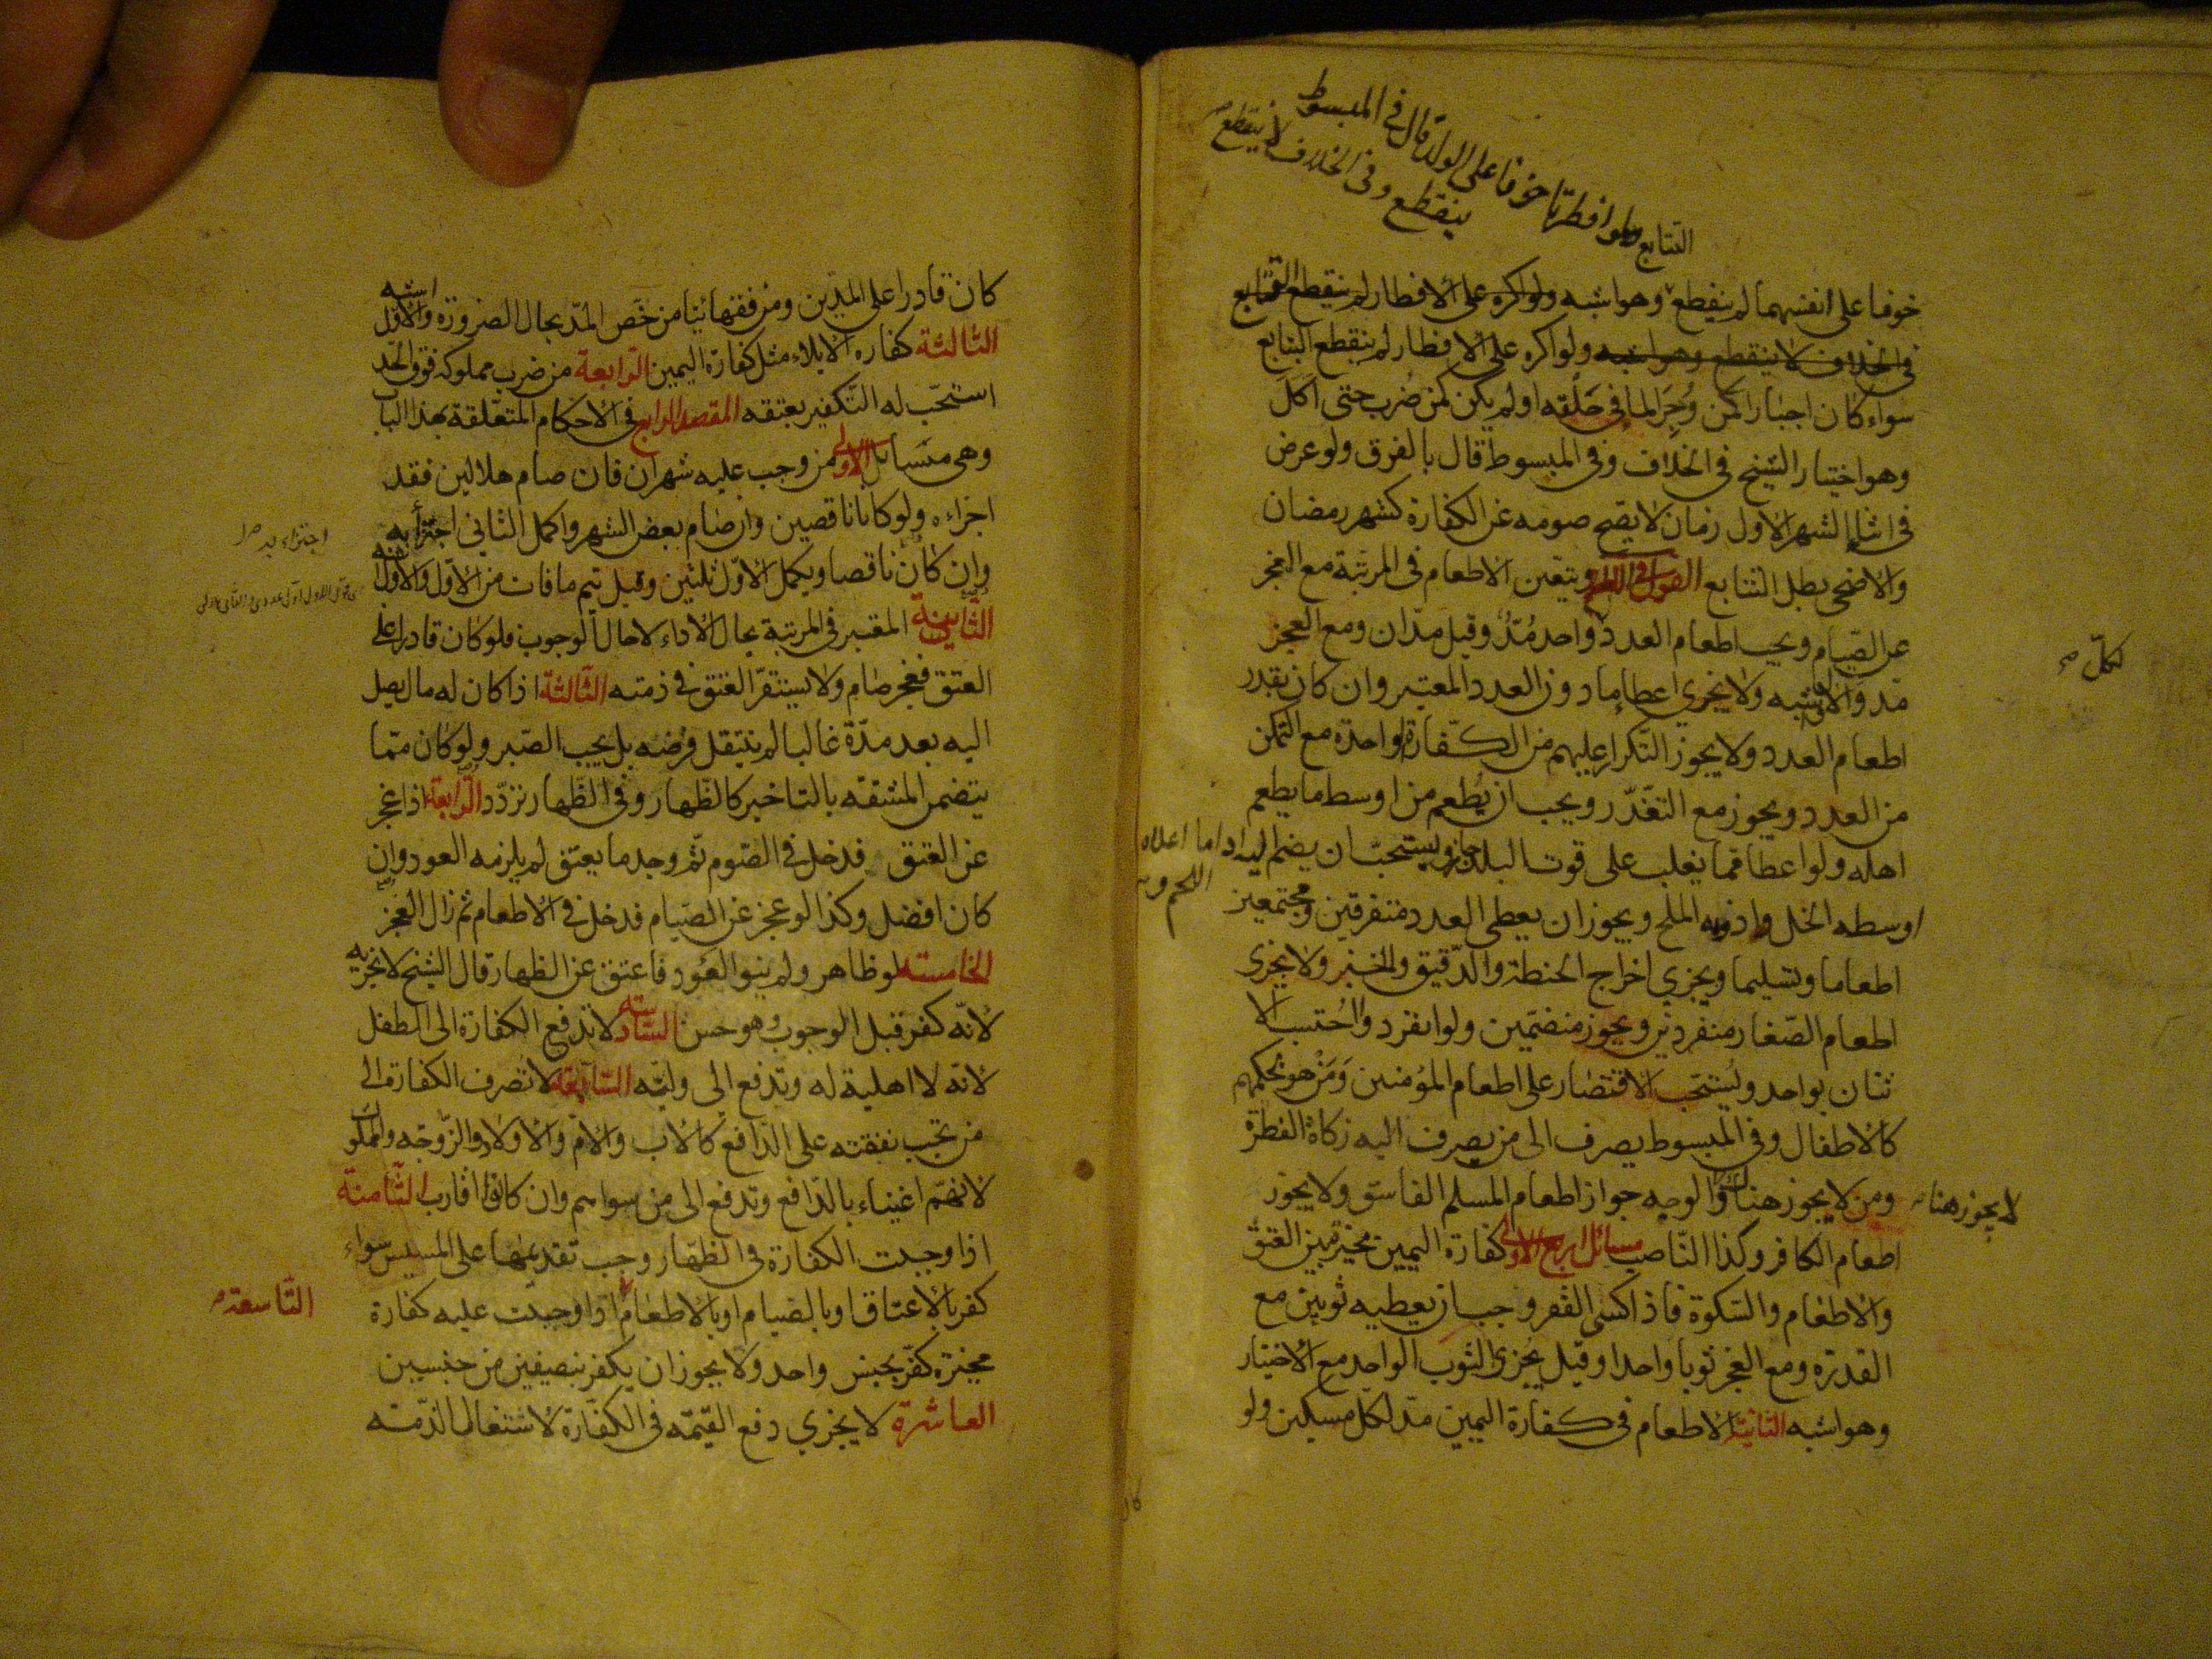 التتابع ولو افطرتا خوفا على الولد قال في المبسوط
ينقطع وفي الخلاف لا ينقطع
خوفا على انفسهما لم ينقطع وهو اشبه ولو اكره على الافطار لم ينقطع التتابع
في الخلاف لا ينقطع وهو اشبه ولو اكره على الافطار لم ينقطع التتابع
سواء كان اجبارا كمن وُجِرَ الما في حَلْقه او لم يكن كمن ضُرب حتى اكل
وهو اختيار الشيخ في الخلاف وفي المبسوط قال بالفرق ولو عرض
في اثنا الشهر الاول زمان لا يصح صومه عن الكفارة كشهر رمضان
والاضحى بطل التتابع القول في ويتعين الاطعام في المرتبة مع العجز
عن الصّيام ويجب اطعام العدد واحد مُدّ وقيل مدّان ومع العجز
لكلّ
مدّ والاول اشبه ولا يجزي اعطا ما دون العدد المعتبر وان كان بقدر
اطعام العدد ولا يجوز التكرار عليهم من الكفّارة الواحدة مع التمكن
من العدد ويجوز مع التعَذّر ويجب ان يُطعم من اوسط ما يطعم
اهله ولو اعطا مما يغلب على قوت البلد جاز ويستحبّ ان يضم اليه اداما اعلاه
اللحم و
اوسطه الخل وادونه الملح ويجوز ان يعطى العدد متفرقين ومجتمعين
اطعاما وتسليما ويجزي اخراج الحنطة والدّقيق والخبز ولا يجزى
اطعام الصّغار منفردين ويجوز منضمّين ولو انفرد وا احُتسب الا
ثنان بواحد ويُستحّب الاقتصار على اطعام المؤمنين وَمَنْ هو بحكمهم
كالاطفال وفي المبسوط يصرف الى من يصرف اليه زكاة الفطرة
ومن لا يجوز هناك والوجه جواز اطعام المسلم الفاسق ولا يجوز
لا يجوز هنا
اطعام الكافر وكذا النّاصب مسائل اربع الاولى كفارة اليمين مخيرة بين العتق
والاطعام والسكوة فاذا كسى الفقر وجب ان يعطيه ثوبين مع
القدرة ومع العجز ثوبا واحدا وقيل يجزى الثوب الواحد مع الاختيار
وهو اشبه الثانية الاطعام في كفارة اليمين مدّ لكلّ مسكين ولو
كان قادرا على المدّين ومن فقهائنا من خَّص المُدّ بحال الضرورة والاول اشبه
الثالثة كفاره الايلاء مثل كفارة اليمين الرابعة من ضرب مملوكه فوق الحّد
استحّب له التكفير بعتقه المقصد الرابع في الاحكام المتعّلقة بهذا البا
وهى مسائل الاولى من وجب عليه شهران فان صام هلالين فقد
اجزاءه ولو كانا ناقصين وان صام بعض الشهر واكمل الثاني اجتزأ به
اجتزاء به
وان كان ناقصا ويكمل الاوّل ثلثين وقيل يتم ما فات من الاوّل والاول اشبه
الثانية المعتبر في المرتبة بحال الاداء لا حال الوجوب فلو كان قادرا على
العتق فعجز صام ولا يستقرّ العتق في ذمته الثالثة اذا كان له مال يصل
اليه بعد مدّة غالبا لم ينتقل فرضه بل يجب الصّبر ولو كان متما
يتضمن المشقّه بالتاخير كالظّهار وفي الظّهار تردّد الرابعة اذا عجز
عن العتق فدخل في الصّوم ثم وجد ما يعتق لم يلزمه العود وان
كان افضل وكذا لو عجز عن الصّيام فدخل في الاطعام ثم زال العجز
الخامسة لو ظاهر ولم ينو العود فاعتق عن الظهار قال الشيخ لا تجزيه
لانّه كفر قبل الوجوب وهو حسن السّادسة لا تدفع الكفارة الى الطفل
لانّه لا اهلية له وتدفع الى وليّه السّابعة لا تصرف الكفارة الى
من تجب نفقته على الدّافع كالاب والام والاولاد والزّوجة والمملوك
لانهم اغنياء بالدّافع وتدفع الى من سواهم وان كانوا اقارب الثّامنة
اذا وجبت الكفارة في الظّهار وجب تقديمها على المسيس سواء
كفر بالاعتاق او بالصّيام او بالاطعام اذا وجبت عليه كفارة
التّاسعة
مخيّرة كفّر بجنس واحد ولا يجوز ان يكفر بنصيفين من جنسين
العاشرة لا يجزي دفع القيّمه في الكفّارة لاشتغال الذّمّة